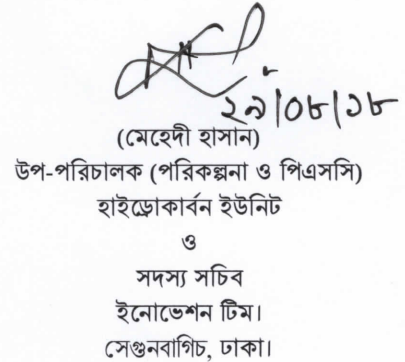 ২৯/০৮/১৮
(মেহেদী হাসান)
উপ-পরিচালক (পরিকল্পনা ও পিএসসি)
হাইড্রোকার্বন ইউনিট
ও
সদস্য সচিব
ইনোভেশন টিম।
সেগুনবাগিচ, ঢাকা।